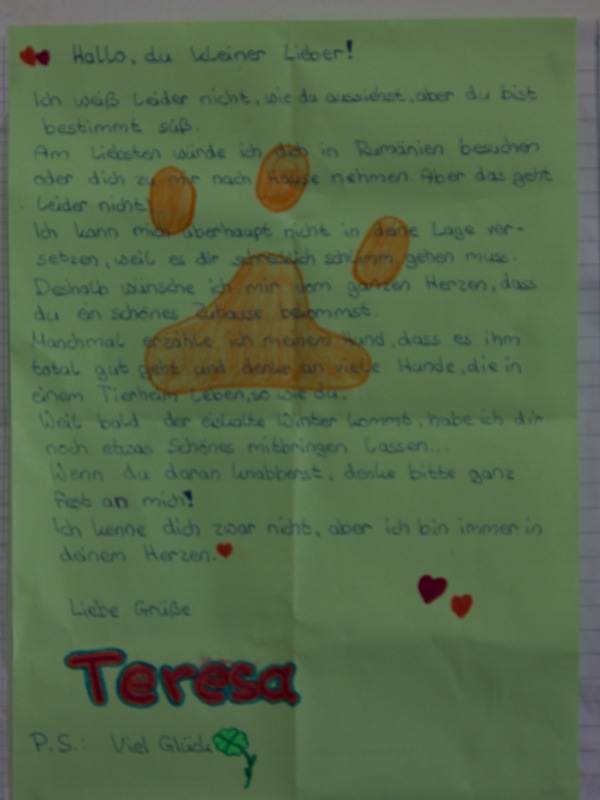 Hallo, du kleiner Lieber!
Ich weiß leider nicht, wie du aussiehst, aber du bist
bestimmt süß.
Am liebsten würde ich dich in Rumänien besuchen
oder dich zu mir nach Hause nehmen. Aber das geht
leider nicht!
Ich kann mich überhaupt nicht in deine Lage ver-
setzen, weil es dir schrecklich schlimm gehen muss.
Deshalb wünsche ich mir vom ganzen Herzen, dass
du ein schönes Zuhause bekommst.
Manchmal erzähle ich meinem Hund, dass es ihm
total gut geht und denke an viele Hunde, die in
einem Tierheim leben, so wie du.
Weil bald der eiskalte Winter kommt, habe ich dir
noch etwas Schönes mitbringen lassen...
Wenn du daran knabberst, denke bitte ganz
fest an mich!
Ich kenne dich zwar nicht, aber ich bin immer in
deinem Herzen.
Liebe Grüße
Teresa
P.S.: Viel Glück